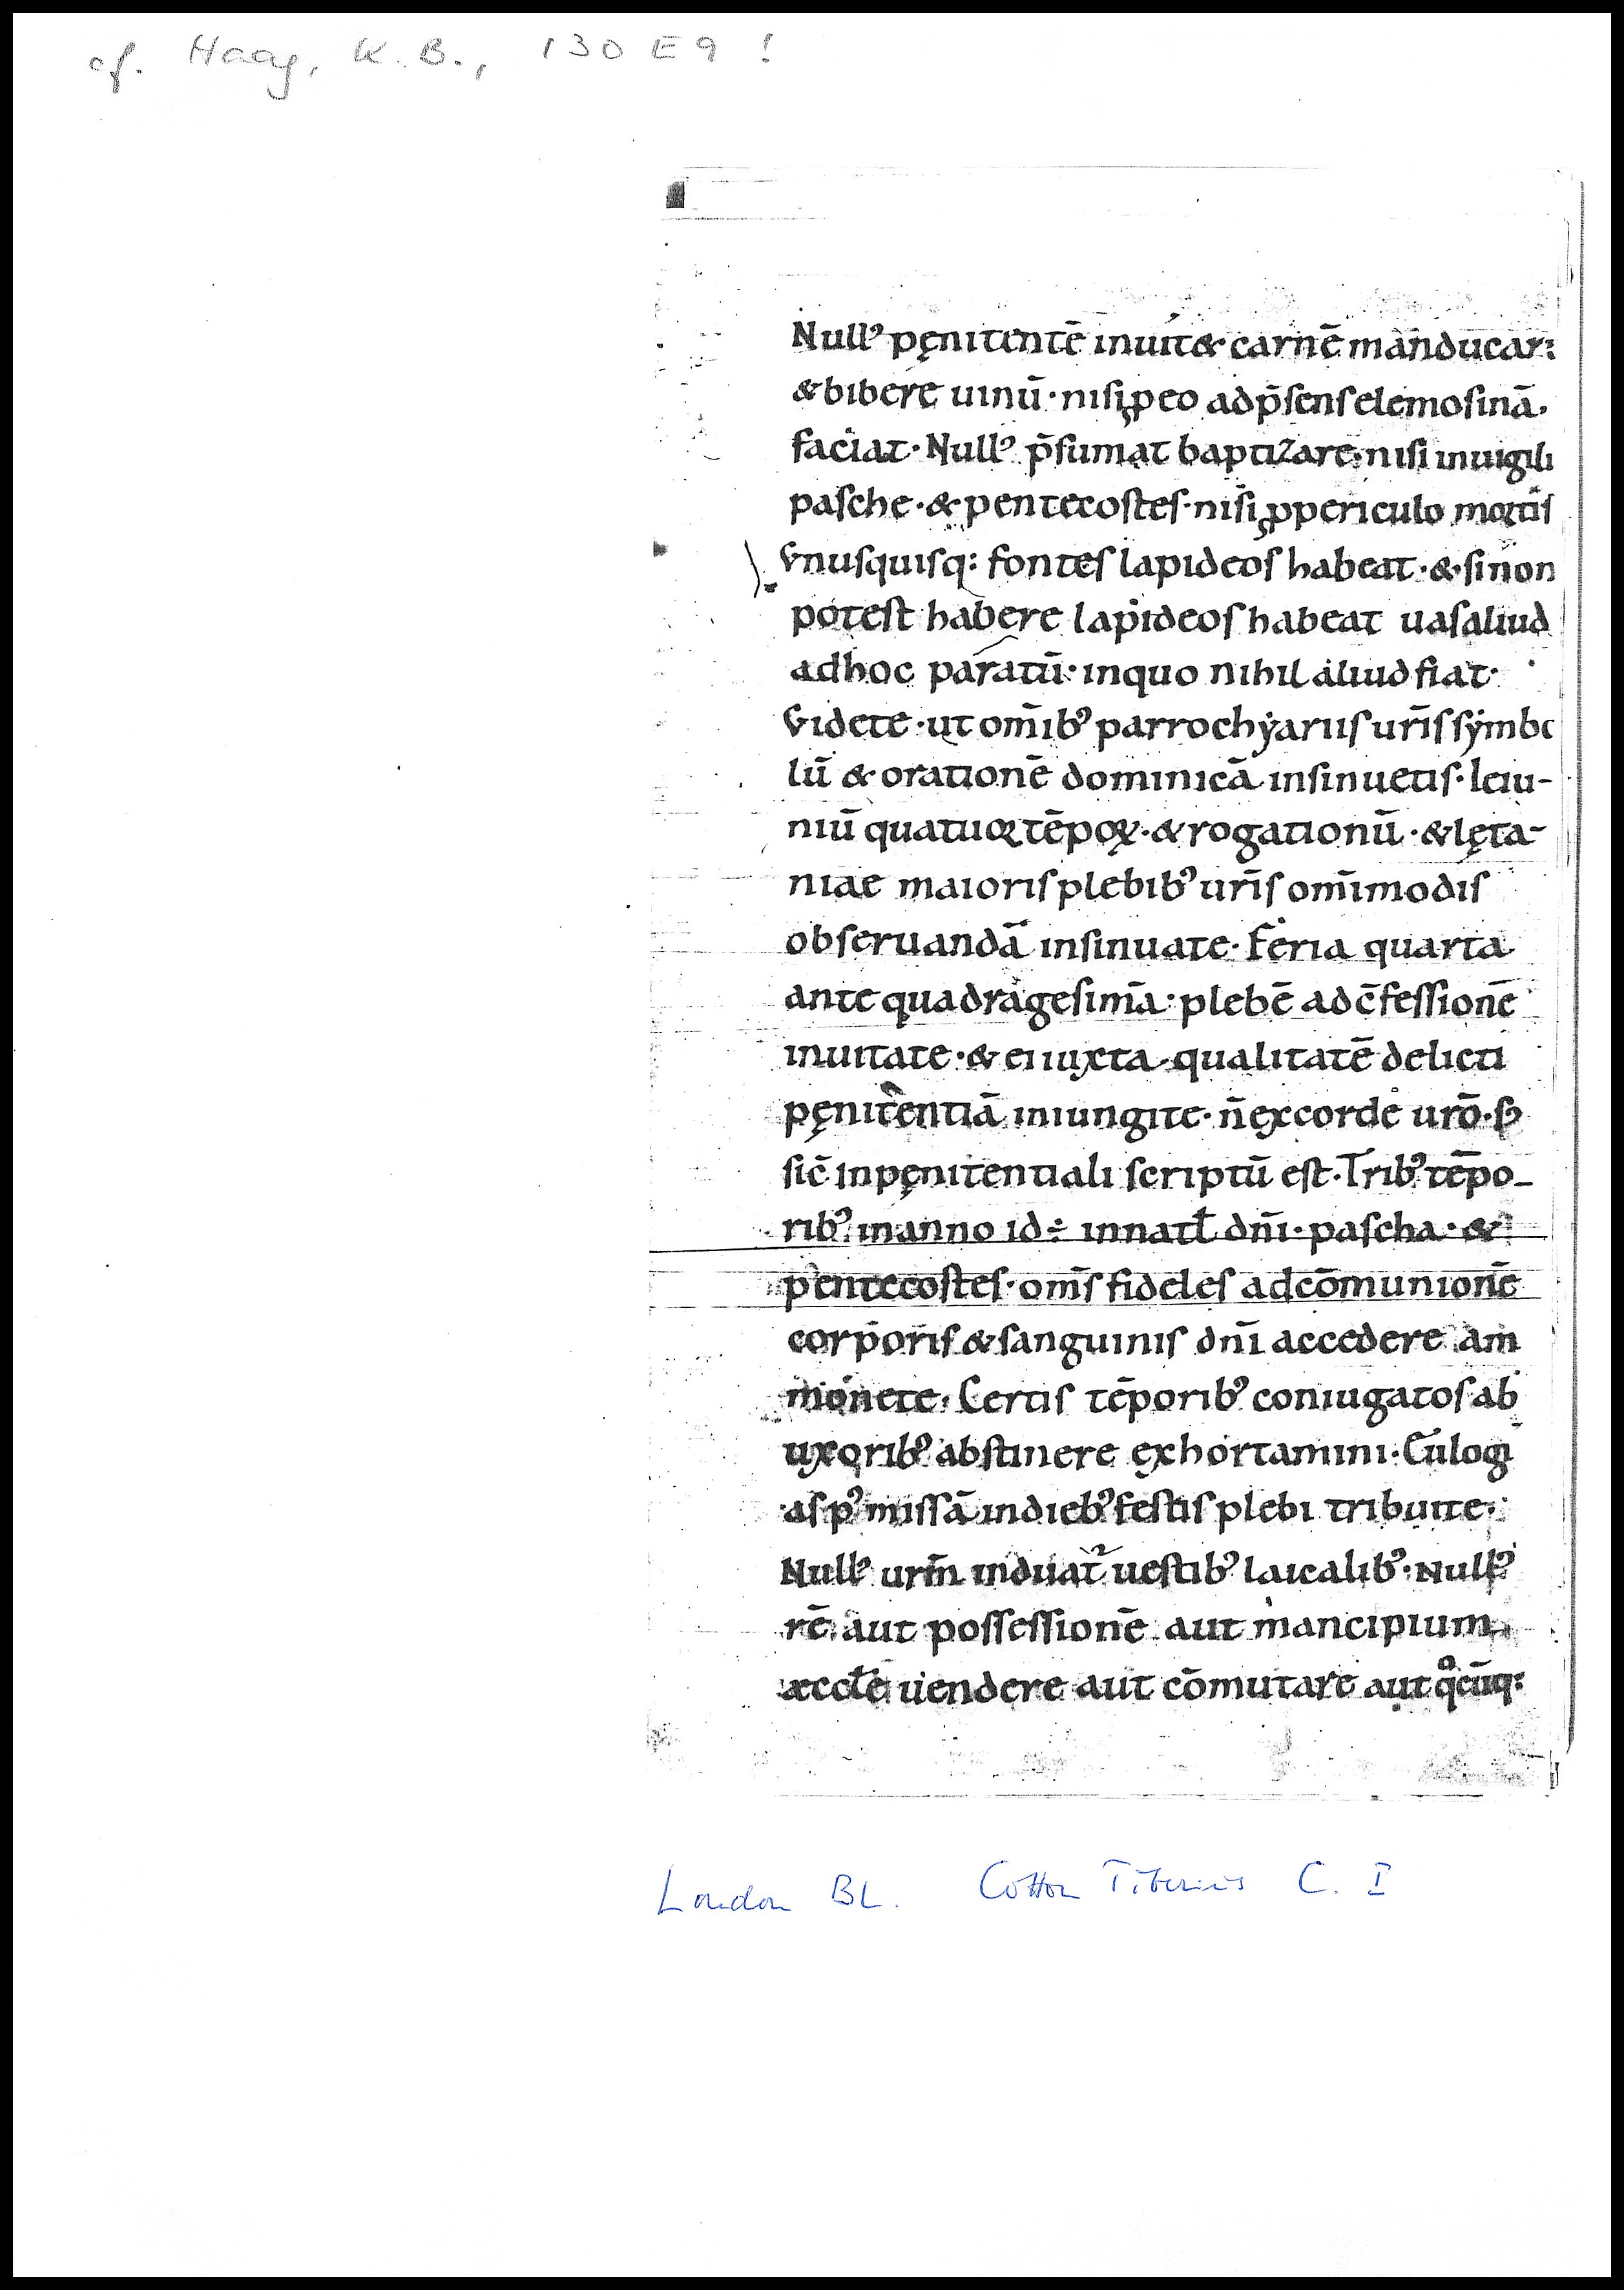 cf. Haag, K.B., 130 E 9 !
Nullꝰ pęnitentē inuit& carnē manducar:
& bibere uinū · nisi ꝓ eo ad p̄sens elemosinā ·
faciat · Nullꝰ p̄sumat baptizare · nisi in uigili
pasche · & pentecostes · nisi ꝓ periculo mortis
Vnusquisq: fontes lapideos habeat · & si non
potest habere lapideos habeat uas aliud
ad hoc paratū · in quo nihil aliud fiat ·
Videte · ut om̄ibꝰ parrochẏariis ur̄is sẏmbo
lū & orationē dominicā insinuetis · Ieiu-
niū quatuor tēpoꝝ · & rogationū · & lęta-
niae maioris plebibꝰ ur̄is om̄imodis
obseruandā insinuate · Feria quarta
ante quadragesimā · plebē ad c̄fessionē
inuitate · & ei iuxta qualitatē delicti
pęnitentiā iniungite · n̄ ex corde ur̄o · sꝫ
sic̄ in pęnitentiali scriptū est · Tribꝰ tēpo-
ribꝰ in anno id ÷ in natł dn̄i · pascha · &
pentecostes · om̄s fideles ad cōmunionē
corporis & sanguinis dn̄i accedere am
monete · Certis tēporibꝰ coniugatos ab
uxoribꝰ abstinere exhortamini · Eulogi
as pꝰ missā in diebꝰ festis plebi tribuite ·
Nullꝰ ur̄m induat᷑ uestibꝰ laicalibꝰ · Nullꝰ
rē aut possessionē aut mancipium
æccłe uendere aut cōmutare aut qͦcūq:
London BL. Cotton Tiberius C. I